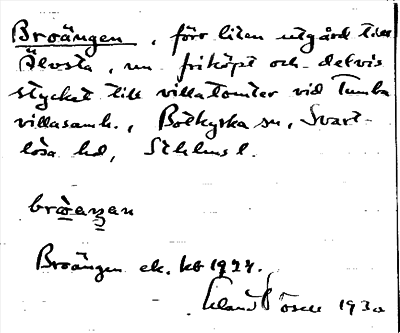 Broängen, förr liten utgård till
Älvsta, nu friköpt och delvis
stycket till villatomter vid Tumba
villasamh., Botkyrka sn, Svart-
lösa hd, Sthlms l.
bròangan
Broängen ek. kb 1927.
1930